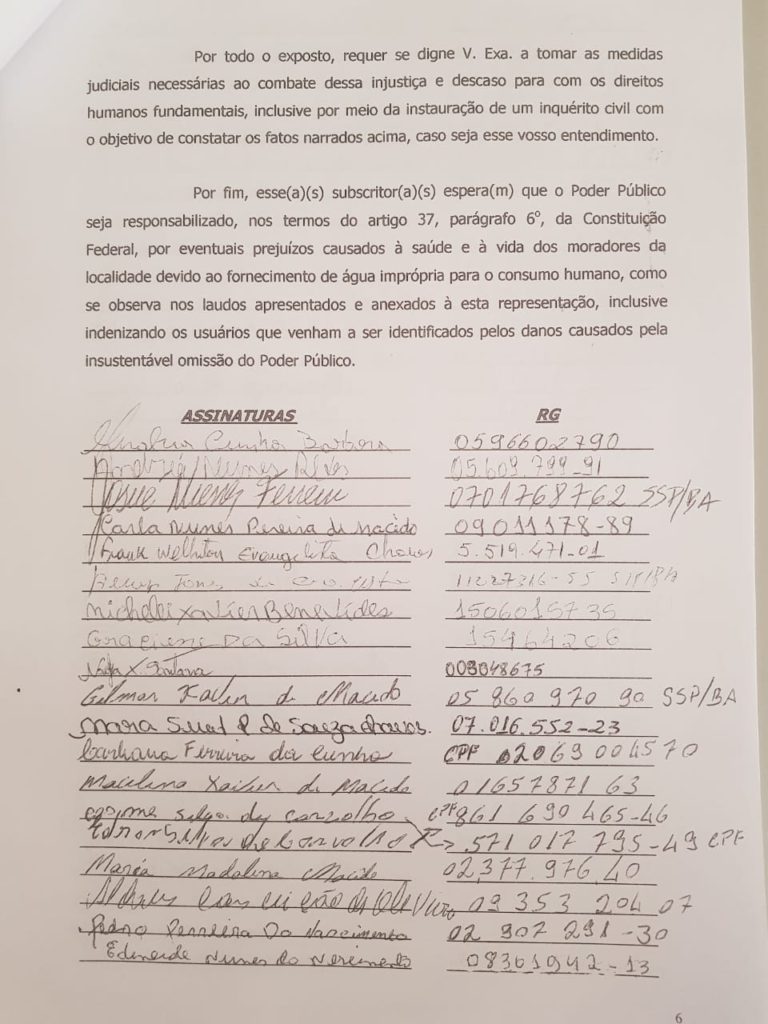 Por todo o exposto, requer se digne V. Exa. a tomar as medidas
judiciais necessárias ao combate dessa injustiça e descaso para com os direitos
humanos fundamentais, inclusive por meio da instauração de um inquérito civil com
o objetivo de constatar os fatos narrados acima, caso seja esse vosso entendimento.
Por fim, esse(a)(s) subscritor(a)(s) espera(m) que o Poder Público
seja responsabilizado, nos termos do artigo 37, parágrafo 6º, da Constituição
Federal, por eventuais prejuízos causados à saúde e à vida dos moradores da
localidade devido ao fornecimento de água imprópria para o consumo humano, como
se observa nos laudos apresentados e anexados à esta representação, inclusive
indenizando os usuários que venham a ser identificados pelos danos causados pela
insustentável omissão do Poder Público.
ASSINATURAS RG
Cunha Barbosa 0596602790
Nunes 05.609.799-91
Josue 0701768762 SSP/BA
Carla Nunes Pereira de Macêdo 09011178-89
Frank Welhiton Evangelista Chaves 5.519.471-01
Michelei Xavier Benevides 1506015735
Graciene Da Silva 15464206
X Santana 003048675
Gilmar Xavier de Macedo 05 860 970 90 SSP/BA
Mara de Souza 07.016.552-23
Ferreira da Cunha CPF 02069004570
Macelina Xavier de Macedo 01657871 63
de Carvalho CPF 861 690 465-46
571 017 795-49 CPF
Maria Madalena Macido 02.377.976.40
09 353 204 07
Pedro Ferreira Do Nascimento 02 907 291-30
Nunes do 08301942-13
6